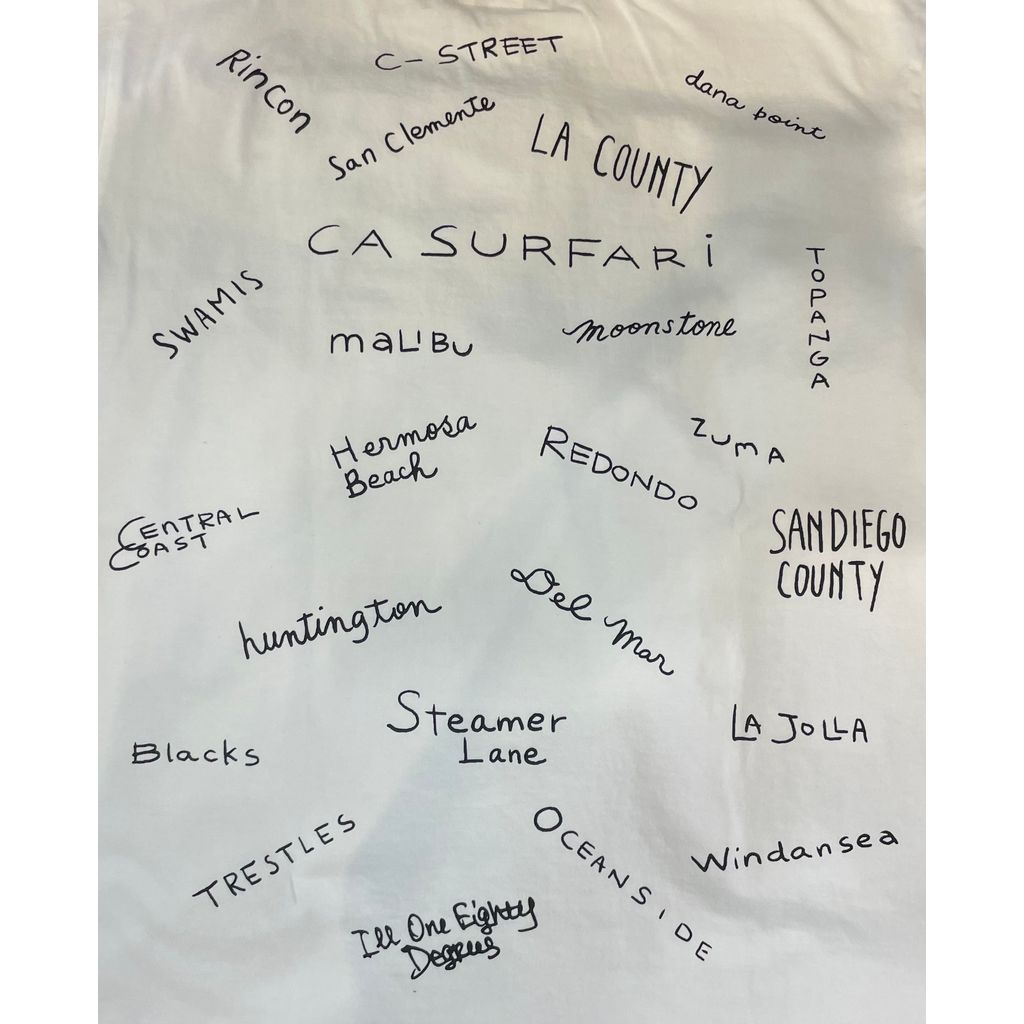 Rincon
C- STREET
dana point
San Clemente
LA COUNTY
CA SURFARi
TOPANGA
SWAMIS
maLIBU
moonstone
Hermosa
Beach
REDONDO
ZUMA
CENTRAL
COAST
SAN DIEGO
COUNTY
huntington
Del Mar
Steamer
Lane
LA JOLLA
Blacks
TRESTLES
OCEANSIDE
Windansea
Ill One Eighty
Degrees